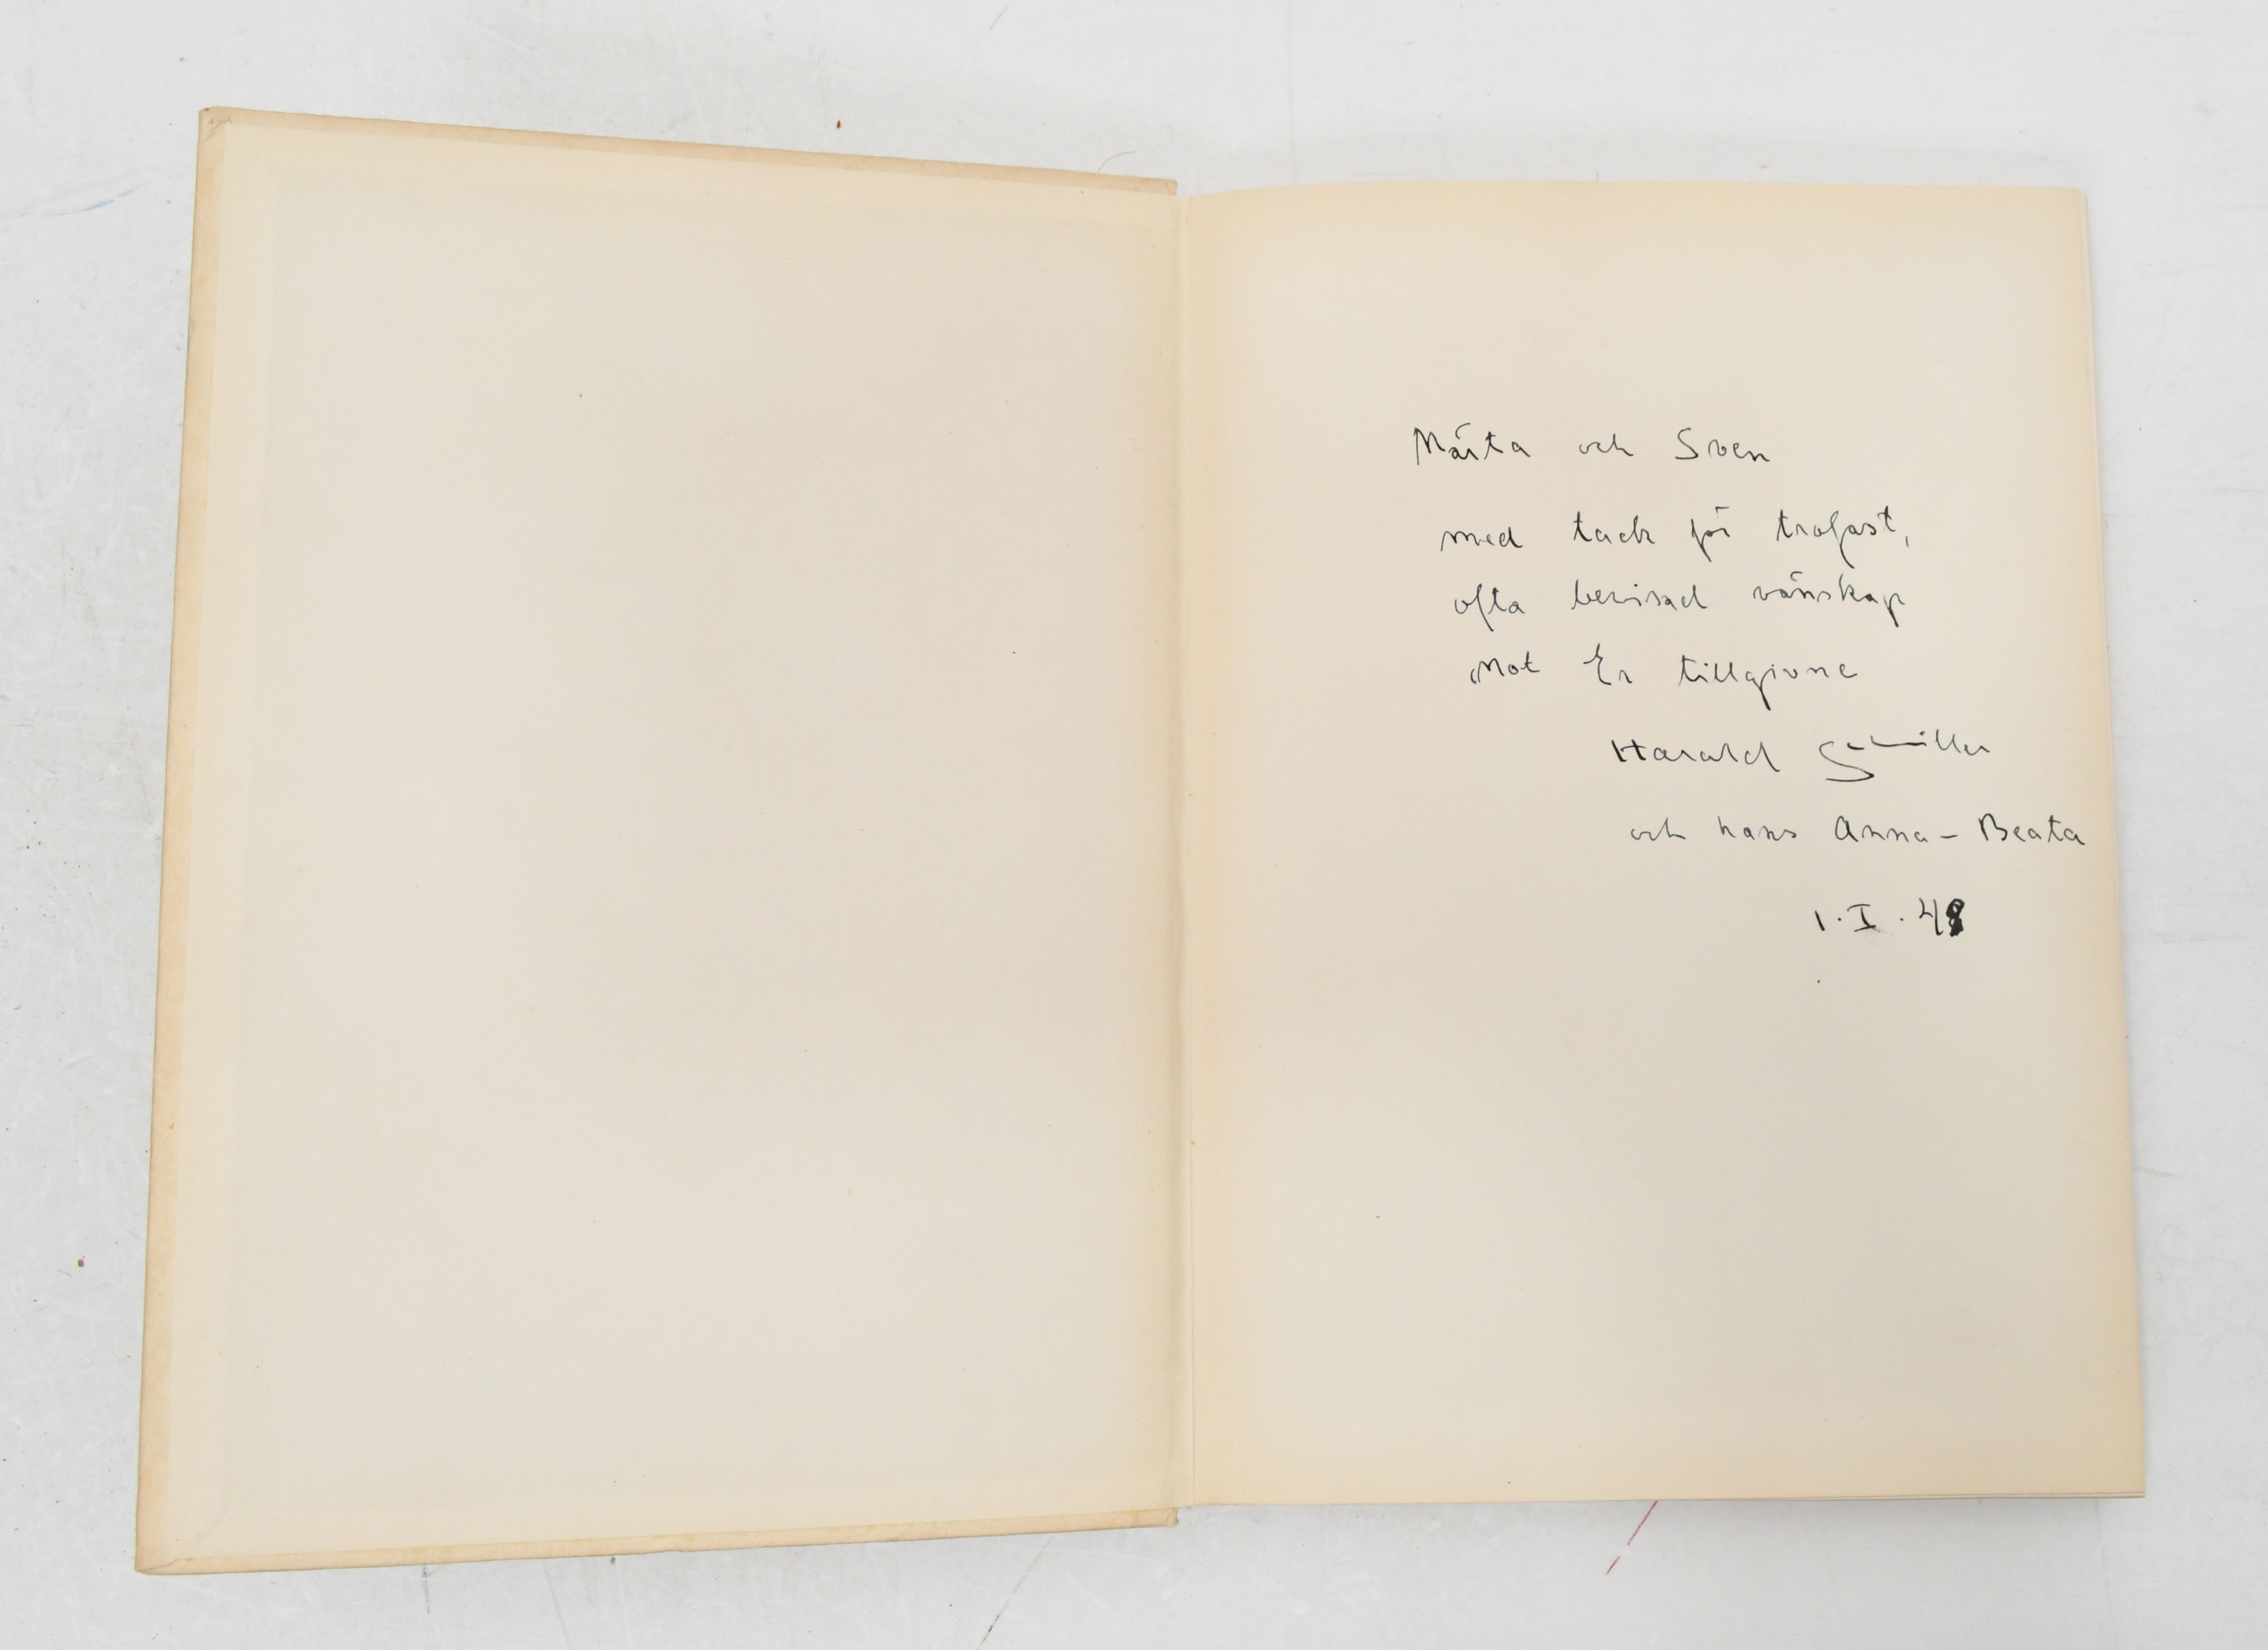 Märta och Sven
med tack för trofast,
ofta bevisad vänskap
Mot Er tillgivne
Harald Schiller
och hans Anna-Beata
1.I.48